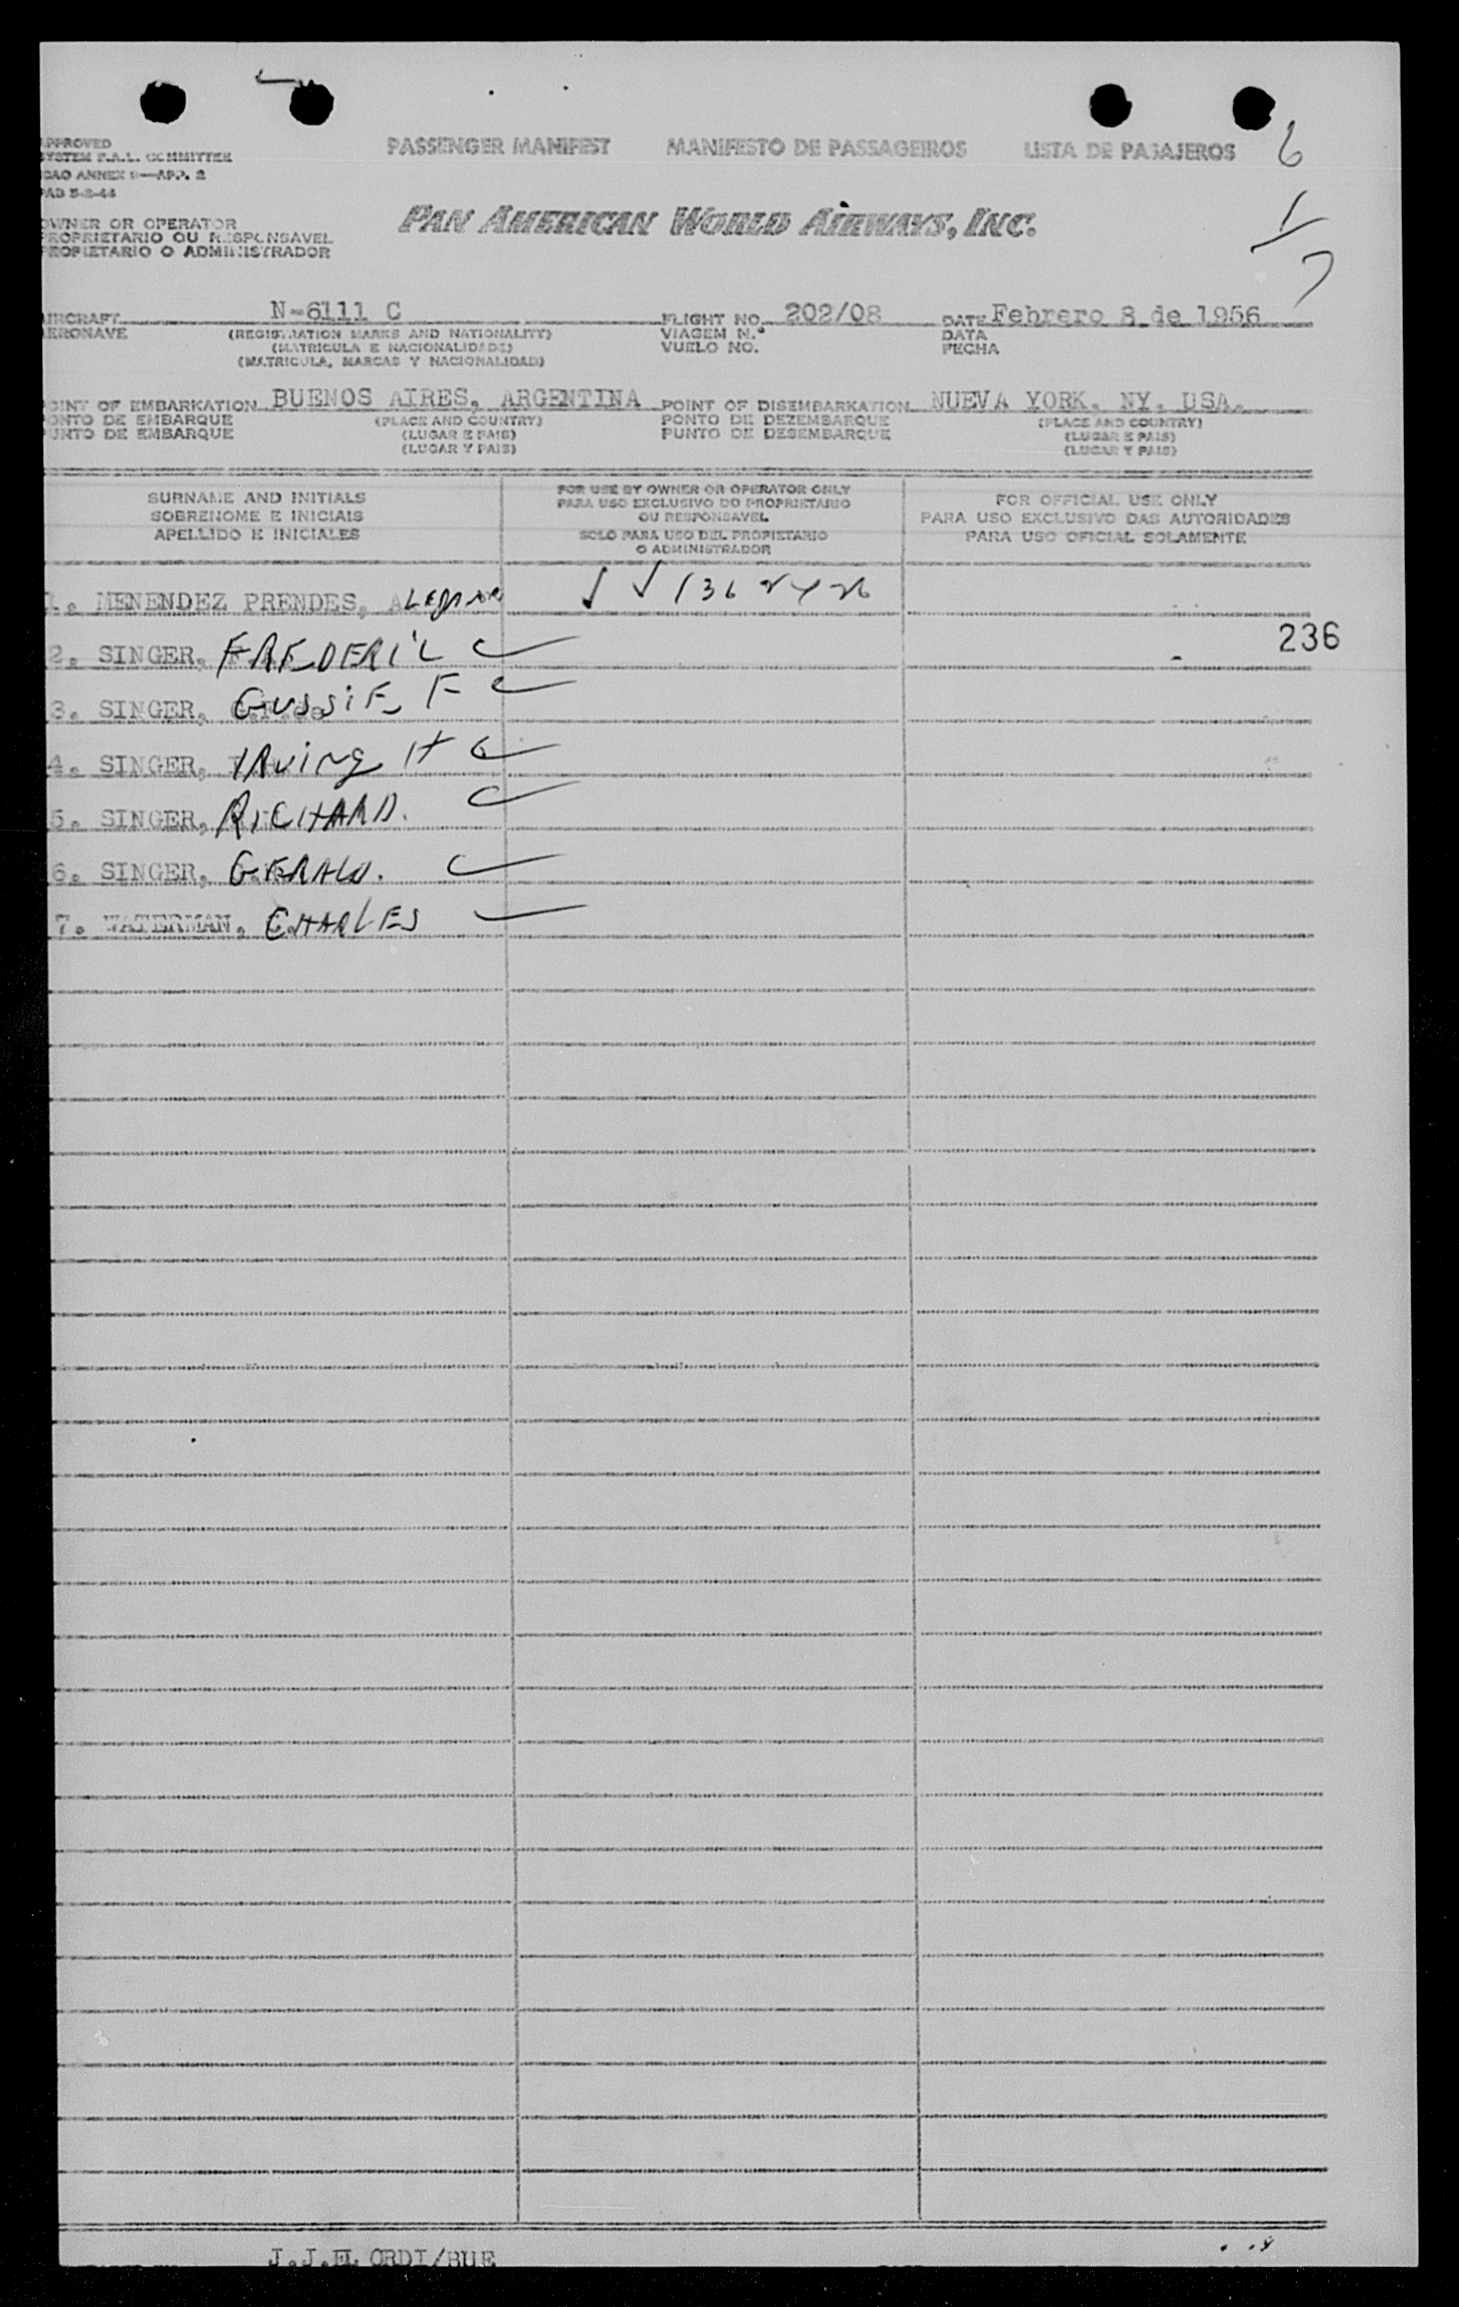 PASSENGER MANIFEST MANIFESTO DE PASSAGEIROS LISTA DE PASAJEROS 6
APPROVED
SYSTEM F.A.L. COMMITTEE
ICAO ANNEX 9—APP. 2
PAB 5-2-46
1/7
OWNER OR OPERATOR
PROPRIETARIO OU RESPONSAVEL
PROPIETARIO O ADMINISTRADOR
PAN AMERICAN WORLD AIRWAYS, INC.
AIRCRAFT N-6111 C FLIGHT NO. 202/08 DATE Febrero 8 de 1956
AERONAVE (REGISTRATION MARKS AND NATIONALITY) VIAGEM N.º DATA
(MATRICULA E NACIONALIDADE) VUELO NO. FECHA
(MATRICULA, MARCAS Y NACIONALIDAD)
POINT OF EMBARKATION BUENOS AIRES, ARGENTINA POINT OF DISEMBARKATION NUEVA YORK, NY, USA.
PONTO DE EMBARQUE (PLACE AND COUNTRY) PONTO DE DEZEMBARQUE (PLACE AND COUNTRY)
PUNTO DE EMBARQUE (LUGAR E PAIS) PUNTO DE DESEMBARQUE (LUGAR E PAIS)
(LUGAR Y PAIS) (LUGAR Y PAIS)
SURNAME AND INITIALS
SOBRENOME E INICIAIS
APELLIDO E INICIALES
FOR USE BY OWNER OR OPERATOR ONLY
PARA USO EXCLUSIVO DO PROPRIETARIO
OU RESPONSAVEL
SOLO PARA USO DEL PROPIETARIO
O ADMINISTRADOR
FOR OFFICIAL USE ONLY
PARA USO EXCLUSIVO DAS AUTORIDADES
PARA USO OFICIAL SOLAMENTE
1. MENENDEZ PRENDES,
236
2. SINGER, FREDERIC
3. SINGER, GUSSIE F
4. SINGER, IRVING H
5. SINGER, RICHARD.
6. SINGER, GERALD.
7. WATERMAN, CHARLES
J.J.EL ORDI/BUE